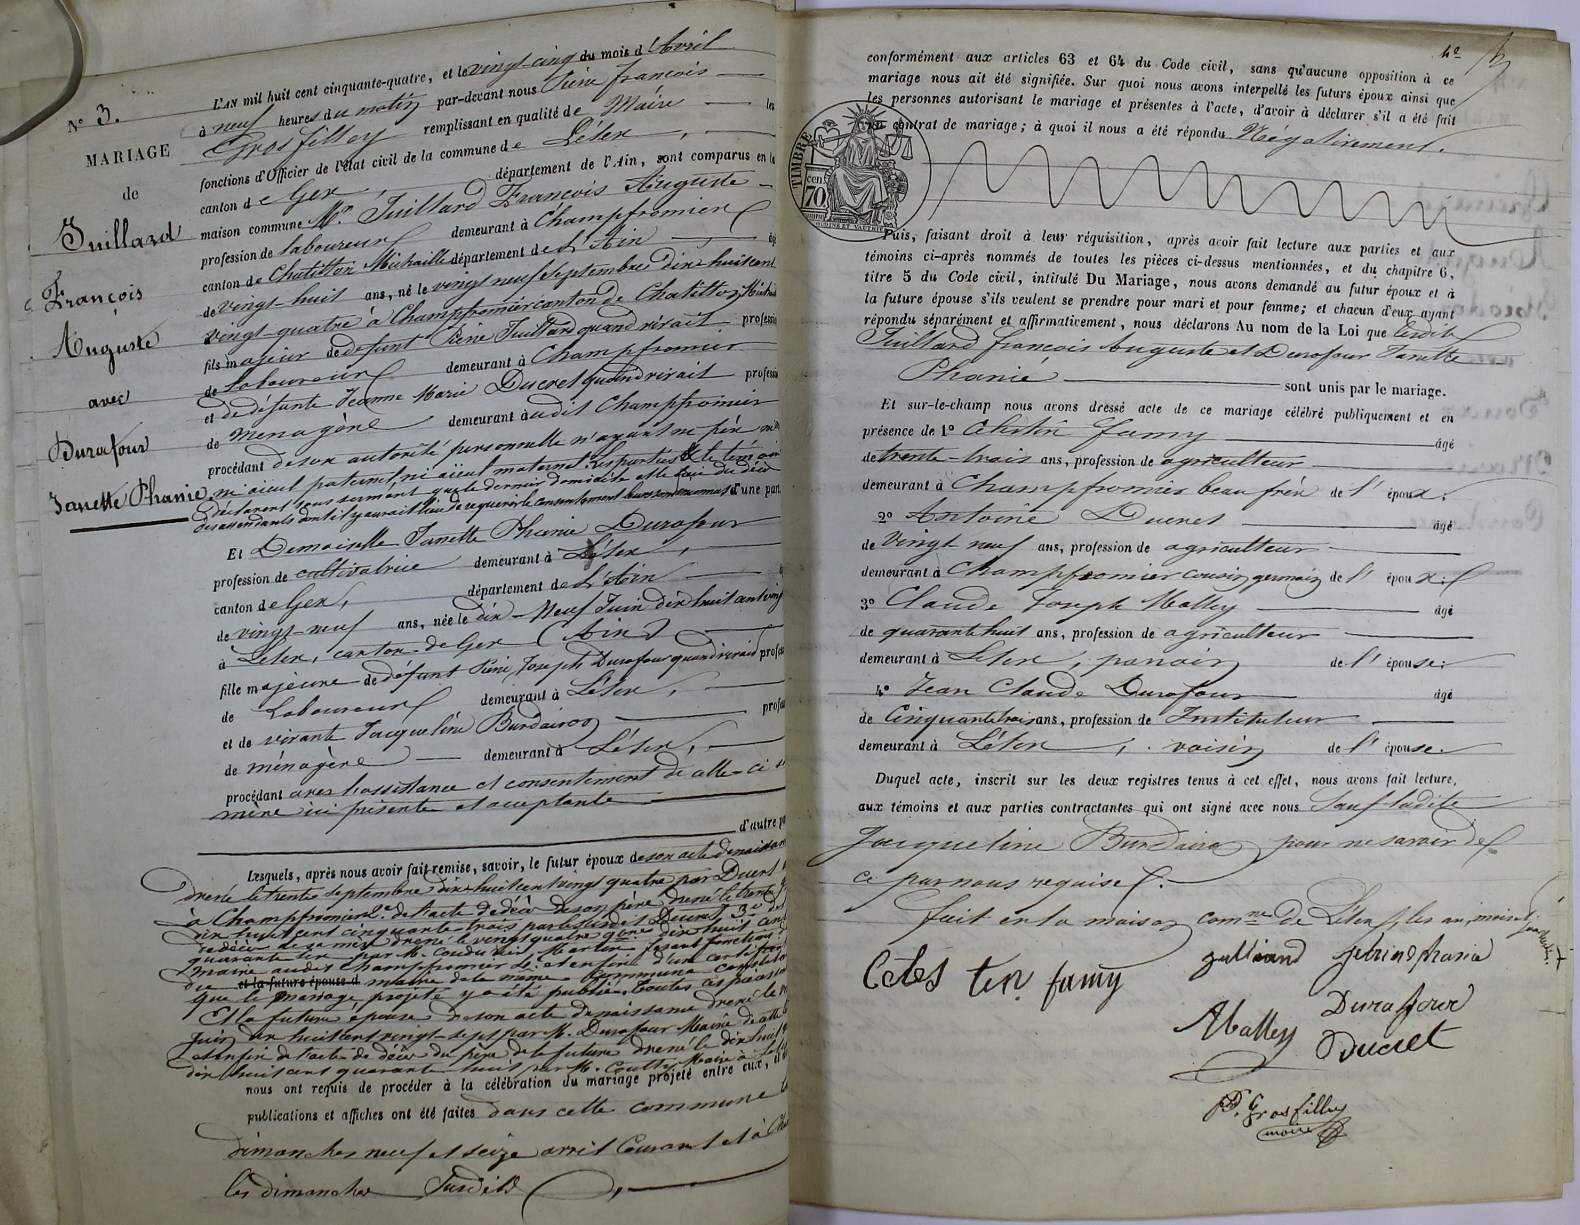 N° 3.
MARIAGE
de
Juillard
François
Auguste
avec
Durafour
Janette Phanie
L'AN mil huit cent cinquante-quatre, et le vingt-cinq du mois d'Avril
à neuf heures du matin par-devant nous Pierre françois
Grosfilley remplissant en qualité de Maire les
fonctions d'Officier de l'état civil de la commune de Lélex,
canton de Gex département de l'Ain, sont comparus en la
maison commune Mr. Juillard François Auguste
profession de laboureur demeurant à Champfromier
canton de Chatillon Michaille département de L'Ain
de vingt-huit ans, né le vingt neuf Septembre dix huit cent
vingt-quatre à Champfromier canton de Chatillon Michaille
fils majeur de defunt Juillard quand vivait profession
de laboureur demeurant à Champfromier
et de défunte Jeanne Marie Ducret quand vivait profession
de menagère demeurant audit Champfromier
procédant de son autorité personnelle n'ayant ni père ni mère
ni aïeul paternel, ni aïeul maternel. les parties et le témoins
déclarent sous serment que le dernier domicile et le lieu du décès
des ascendants dont il y aurait lieu de requérir le consentement leurs sont inconnus d'une part
Et Demoiselle Janette Phanie Durafour
profession de cultivatrice demeurant à Lélex,
canton de Gex, département de L'Ain
de vingt-neuf ans, née le dix-Neuf Juin dix huit cent vingt
à Lélex, canton de Gex (Ain)
fille majeure de défunt Joseph Durafour quand vivait profession
de Laboureur demeurant à Lélex,
et de vivante Jacqueline Burdairon profession
de ménagère demeurant à Lélex,
procédant avec l'assistance et consentement de
mère ici présente et acceptante
d'autre part
Lesquels, après nous avoir fait remise, savoir, le futur époux de son acte de naissance
dressé le trente septembre dix huit cent vingt quatre par Ducret
à Champfromier 2°. de l'acte de décès de son père, dressé le trente
dix huit cent cinquante trois par le susdit Ducret, 3°.
décès de sa mère dressé le vingt quatre dix huit cent
quarante par M. Coudurier Martin faisant fonctions
maire audit Champfromier et enfin d'un certificat
du et la future épouse d maire de la même commune constatant
que le mariage projeté y a été publié.
Et la future épouse de son acte de naissance dressé le
juin dix huit cent vingt-sept par M. Durafour Maire
et enfin de l'acte de décès du père de la future dressé le dix huit
dix huit cent quarante huit par M. Coutty Maire à Lélex
nous ont requis de procéder à la célébration du mariage projeté entre eux,
publications et affiches ont été faites dans cette commune
dimanches neuf et seize avril Courant et à
les dimanches Susdits
4e
conformément aux articles 63 et 64 du Code civil, sans qu'aucune opposition à ce
mariage nous ait été signifiée. Sur quoi nous avons interpellé les futurs époux ainsi que
les personnes autorisant le mariage et présentes à l'acte, d'avoir à déclarer s'il a été fait
un contrat de mariage; à quoi il nous a été répondu Négativement.
TIMBRE
70 cen
Puis, faisant droit à leur réquisition, après avoir fait lecture aux parties et aux
témoins ci-après nommés de toutes les pièces ci-dessus mentionnées, et du chapitre 6,
titre 5 du Code civil, intitulé Du Mariage, nous avons demandé au futur époux et à
la future épouse s'ils veulent se prendre pour mari et pour femme; et chacun d'eux ayant
répondu séparément et affirmativement, nous déclarons Au nom de la Loi que Ledit
Juillard françois Auguste et Durafour Janette
Phanie sont unis par le mariage.
Et sur-le-champ nous avons dressé acte de ce mariage célébré publiquement et en
présence de 1° Célestin famy âgé
de trente-trois ans, profession de agriculteur
demeurant à Champfromier beau frère de l'époux;
2° Antoine Ducret âgé
de vingt neuf ans, profession de agriculteur
demeurant à Champfromier cousin germain de l'époux;
3° Claude Joseph Malley âgé
de quarante huit ans, profession de agriculteur
demeurant à Lélex, de l'épouse;
4° Jean Claude Durafour âgé
de Cinquante trois ans, profession de Instituteur
demeurant à Lélex, voisin de l'épouse.
Duquel acte, inscrit sur les deux registres tenus à cet effet, nous avons fait lecture,
aux témoins et aux parties contractantes qui ont signé avec nous Sauf ladite
Jacqueline Burdairon pour ne savoir de
ce par nous requise.
fait en la maison comne de Lélex, les an, mois et jour susdits.
Celes tin famy
Julliand
Malley
Durafour
Ducret
P. Grosfilley
maire